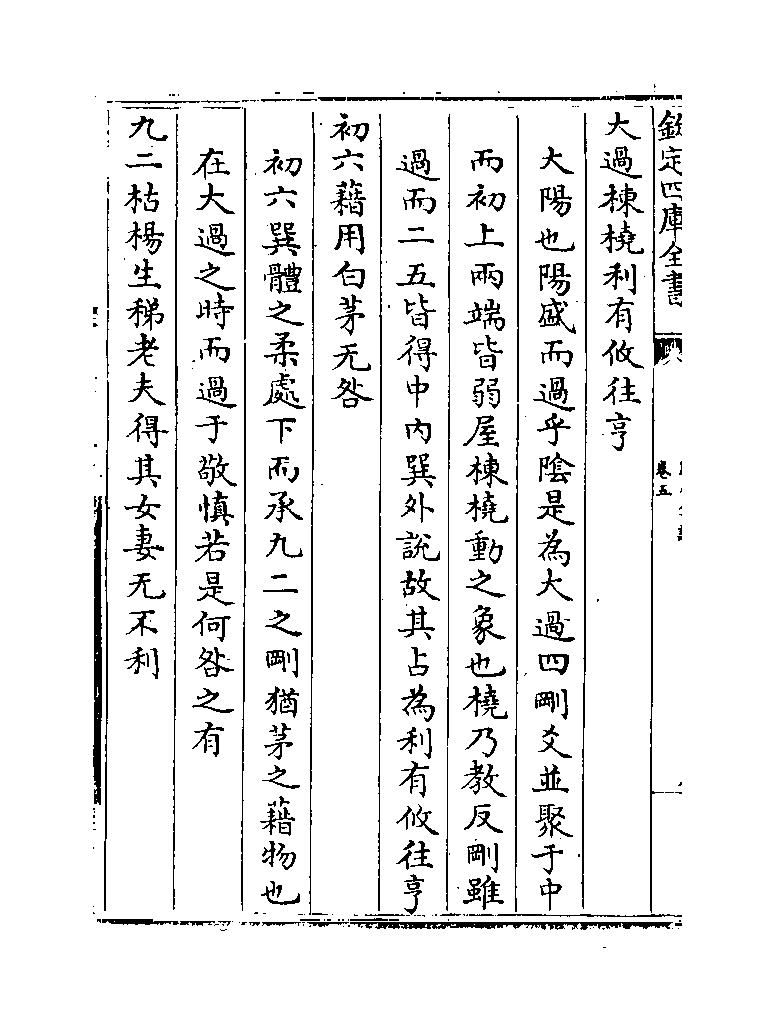 欽定四庫全書
卷五
大過棟橈利有攸往亨
大陽也陽盛而過乎陰是為大過四剛爻並聚于中
而初上兩端皆弱屋棟橈動之象也橈乃教反剛雖
過而二五皆得中內巽外說故其占為利有攸往亨
初六藉用白茅无咎
初六巽體之柔處下而承九二之剛猶茅之藉物也
在大過之時而過于敬慎若是何咎之有
九二枯楊生稊老夫得其女妻无不利